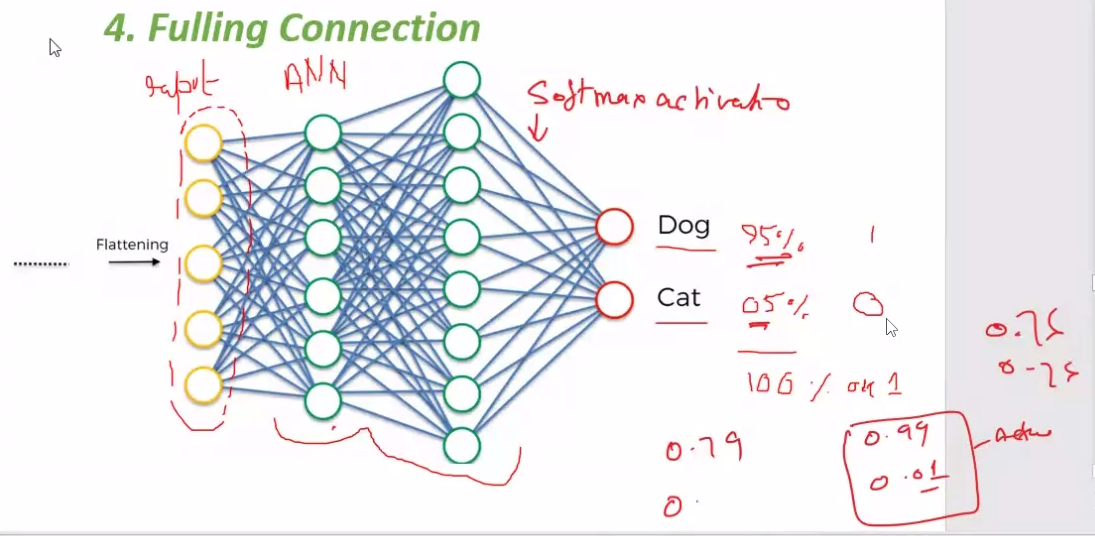 4. Fulling Connection
Input
ANN
Softmax activatio
Flattening
Dog 95% 1
Cat 05% 0
100% or 1
0.75
0-25
0.79
0.
0.99
0.01